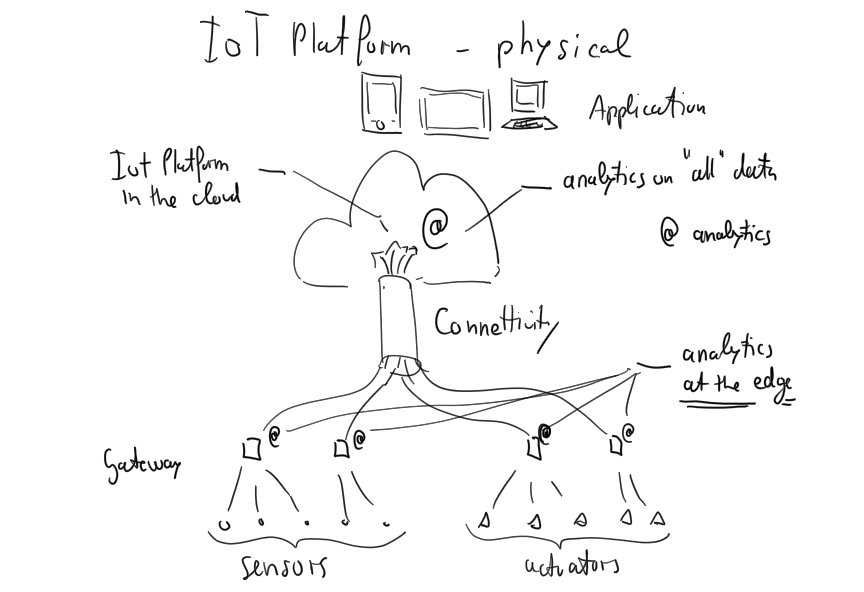 IoT Platform - physical
Application
IoT Platform
in the cloud
analytics on "all" data
@ analytics
@
Connettivity
analytics
at the edge
@ @ @ @
Gateway
sensors
actuators